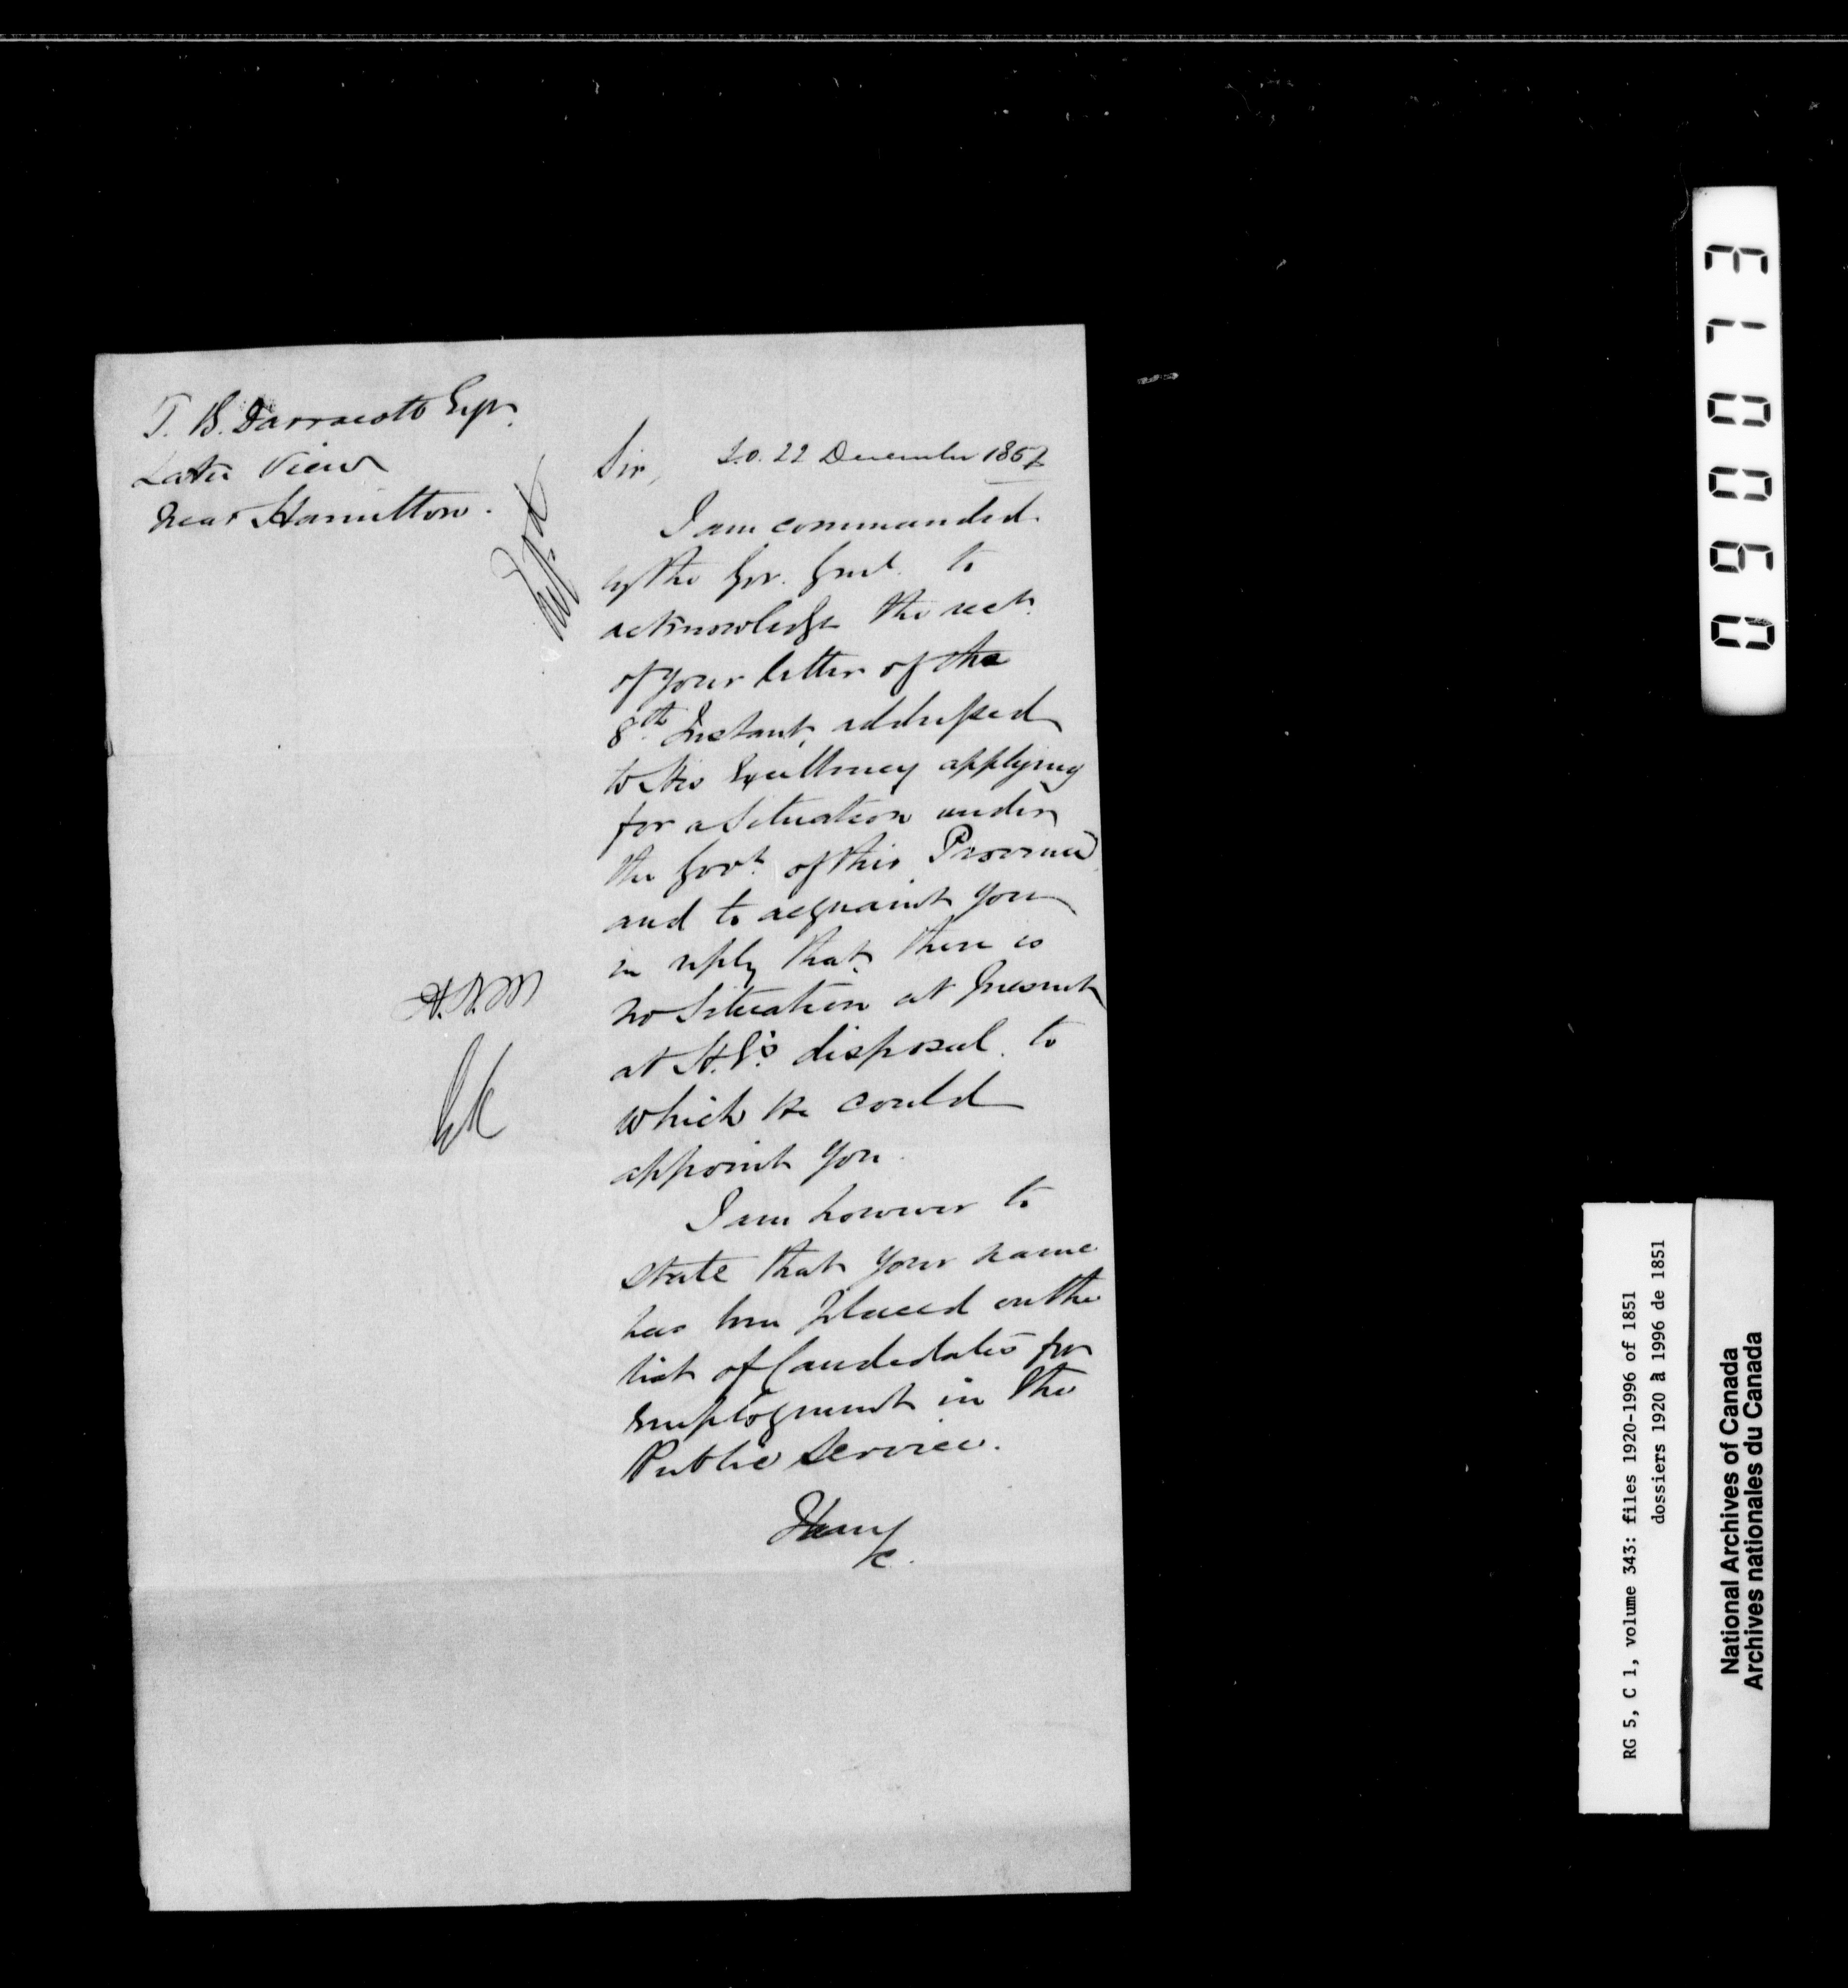 T. B. Darracott Esqr.
Lake View
near Hamilton.
Sir, S.O. 22 December 1851
I am commanded
by the Gov. Genl. to
acknowledge the rect.
of your letter of the
8th Instant, addressed
to His Excellency applying
for a Situation under
the Govt. of this Province,
and to acquaint you
in reply that there is
no Situation at present
at H.E's. disposal to
which He could
appoint you.
I am however to
state that your name
has been placed on the
list of Candidates for
employment in the
Public Service.
I have
&c.
090073
RG 5, C 1, volume 343: files 1920-1996 of 1851
dossiers 1920 à 1996 de 1851
National Archives of Canada
Archives nationales du Canada